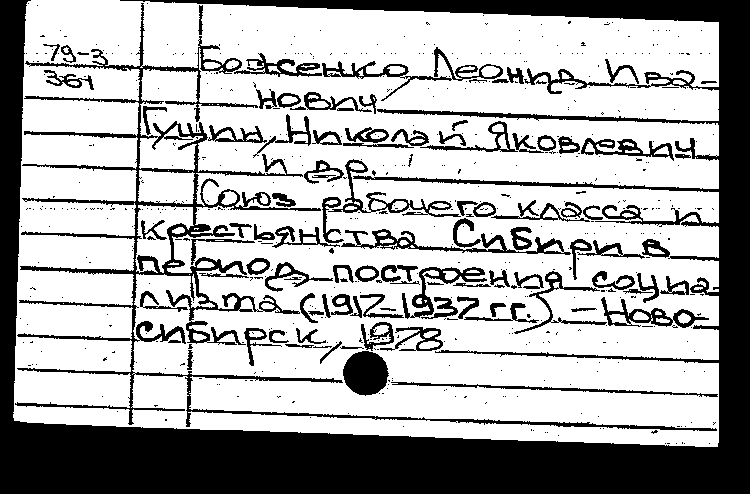 79-3
361
Боженко Леонид Ива-
нович
Гущин, Николай Яковлевич
и др.
Союз рабочего класса и
крестьянства Сибири в
период построения социа-
лизма (1917-1937 гг.) - Ново-
сибирск, 1978